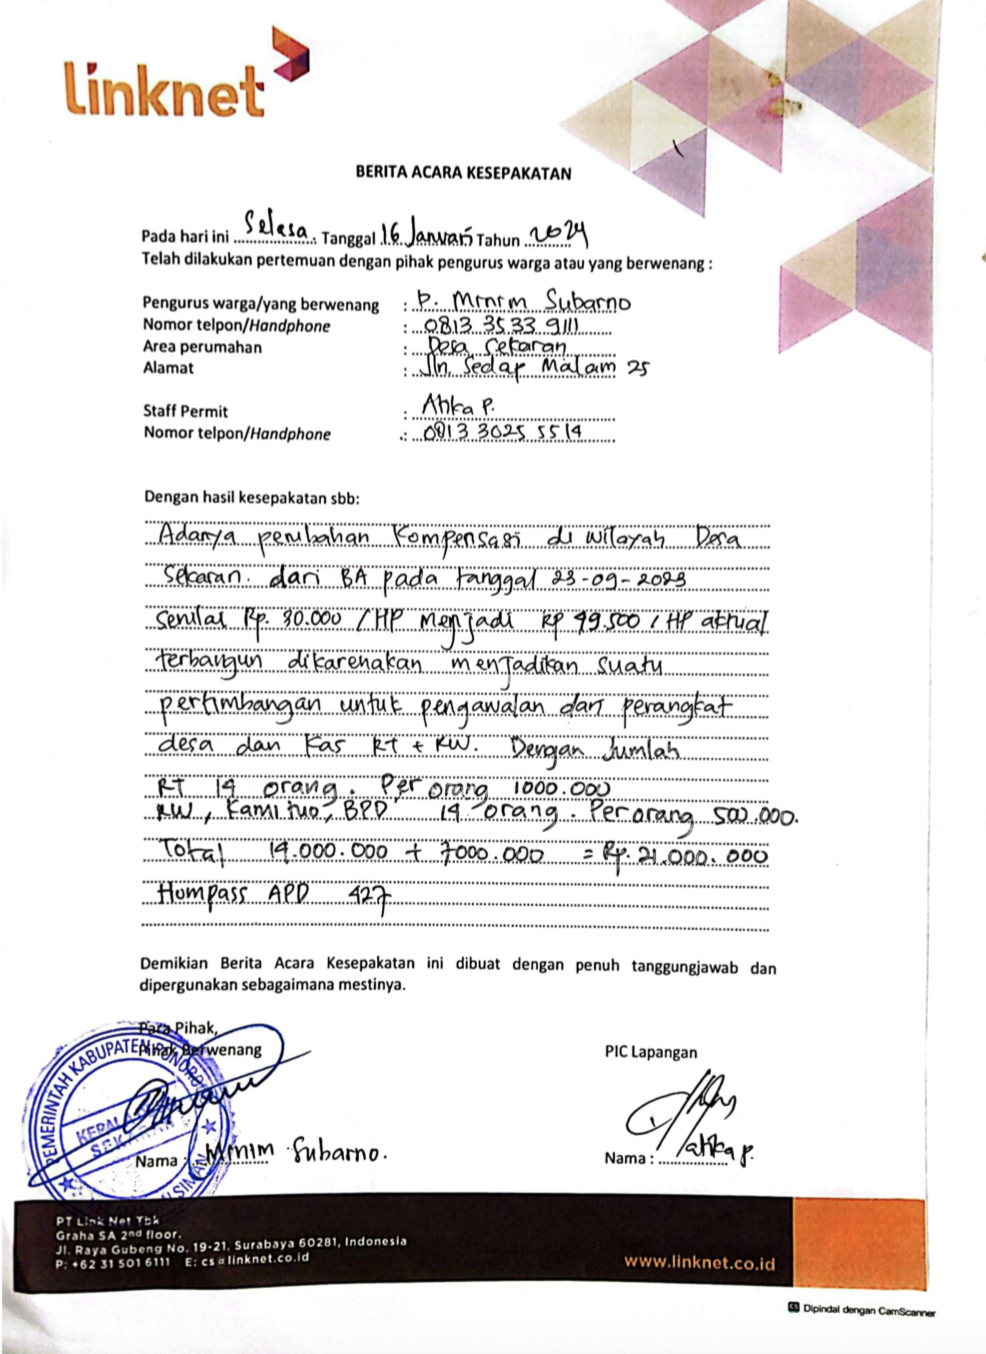 linknet
BERITA ACARA KESEPAKATAN
Pada hari ini Selasa. Tanggal 16 Januari Tahun 2024
Telah dilakukan pertemuan dengan pihak pengurus warga atau yang berwenang :
Pengurus warga/yang berwenang : P. Mrnrm Subarno
Nomor telpon/Handphone : 0813 3533 9111
Area perumahan : Desa Sekaran
Alamat : Jln. Sedap Malam 25
Staff Permit : Atika P.
Nomor telpon/Handphone : 0813 3025 5514
Dengan hasil kesepakatan sbb:
Adanya perubahan Kompensasi di wilayah Desa
Sekaran. dari BA pada tanggal 23-09-2023
Senilai Rp. 30.000 /HP menjadi Rp 49.500 / HP aktual
terbangun dikarenakan menjadikan suatu
pertimbangan untuk pengawalan dari perangkat
desa dan Kas RT + RW. Dengan Jumlah
RT 14 orang. Per orang 1000.000
RW, Kamituo, BPD 14 orang. Per orang 500.000.
Total 14.000.000 + 7000.000 = Rp. 21.000.000
Hompass APD 427
Demikian Berita Acara Kesepakatan ini dibuat dengan penuh tanggungjawab dan
dipergunakan sebagaimana mestinya.
Para Pihak,
Pihak Berwenang
PIC Lapangan
PEMERINTAH KABUPATEN PONOROGO
KEPALA
SEKARAN
SIMAN
Nama : Mrnrm Subarno.
Nama : Atika P.
PT Link Net Tbk
Graha SA 2nd floor.
Jl. Raya Gubeng No. 19-21. Surabaya 60281, Indonesia
P: +62 31 501 6111 E: cs@linknet.co.id
www.linknet.co.id
Dipindai dengan CamScanner